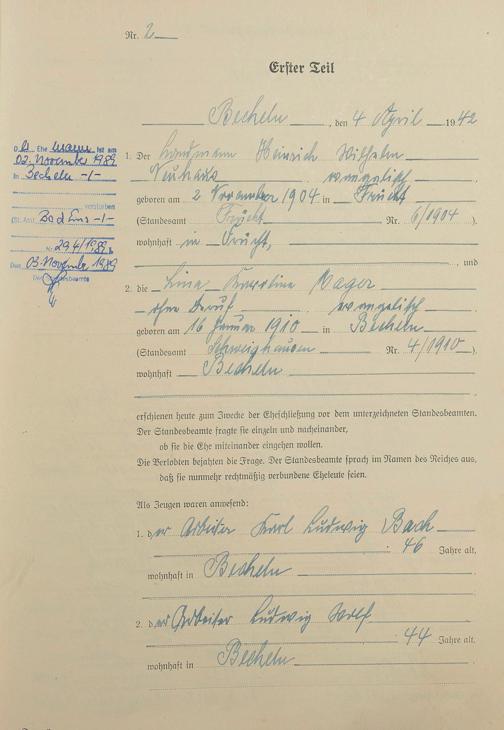 Nr. 2
Erster Teil
Becheln, den 4 April 1942
D er Ehemann ist am
02. November 1989
in Becheln -/-
verstorben
(St. Amt Bad Ems -/-
Nr. 294/1989)
Den 03. November 1989
Der Standesbeamte
1. Der Landmann Heinrich Wilhelm
Neuhaus evangelisch
geboren am 2 November 1904 in Frücht
(Standesamt Frücht Nr. 6/1904).
wohnhaft in Frücht,
und
2. die Lina Karoline
ohne Beruf evangelisch
geboren am 16 Januar 1910 in Becheln
(Standesamt Schweighausen Nr. 4/1910).
wohnhaft Becheln
erschienen heute zum Zwecke der Eheschließung vor dem unterzeichneten Standesbeamten.
Der Standesbeamte fragte sie einzeln und nacheinander,
ob sie die Ehe miteinander eingehen wollen.
Die Verlobten bejahten die Frage. Der Standesbeamte sprach im Namen des Reiches aus,
daß sie nunmehr rechtmäßig verbundene Eheleute seien.
Als Zeugen waren anwesend:
1. der Arbeiter Karl Ludwig Bach
46 Jahre alt,
wohnhaft in Becheln
2. der Arbeiter Ludwig Wolf
44 Jahre alt,
wohnhaft in Becheln